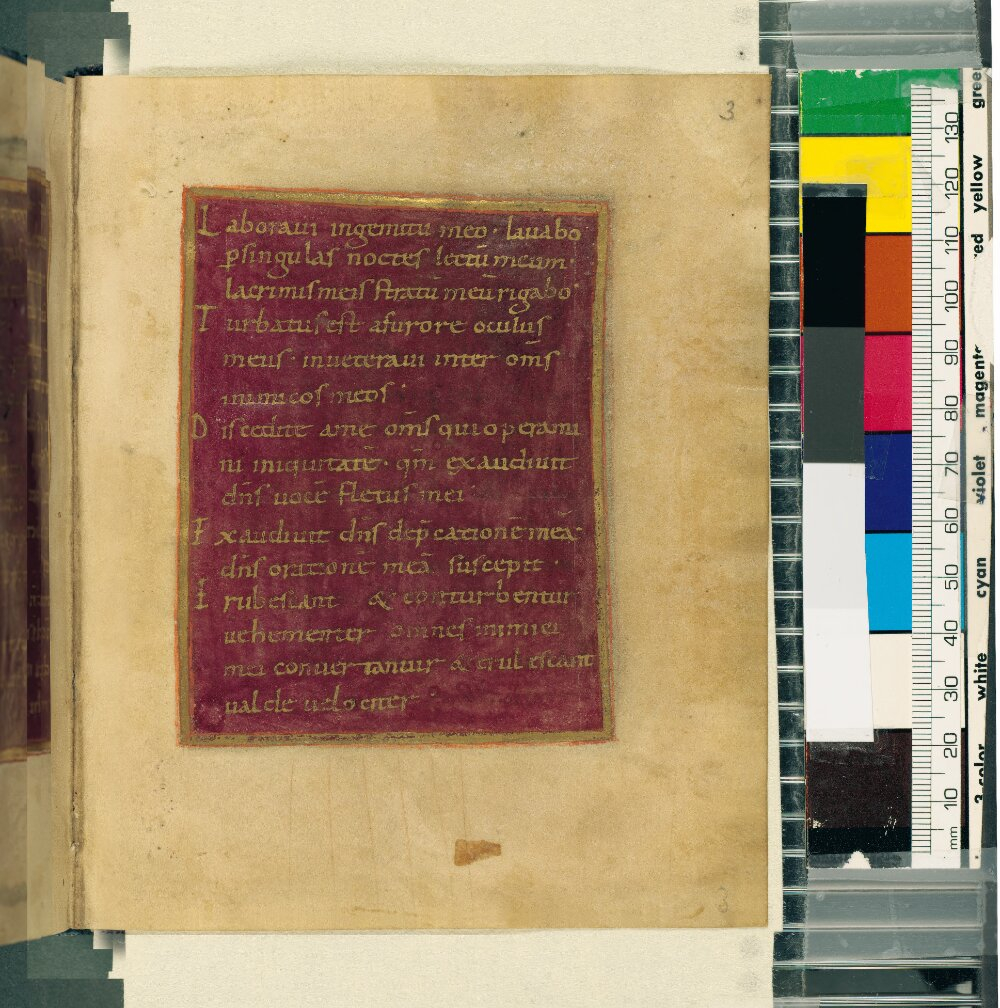 3
Laboraui ingemitu meo · lauabo
p̲singulas noctes lectū meum ·
lacrimis meis stratū meū rigabo ·
Turbatus est afurore oculus
meus · inueteraui inter om̄s
inimicos meos ·
Discedite ame om̄s qui operami
ni iniquitatē · qm̄ exaudiuit
dn̄s uocē fletus mei
Exaudiuit dn̄s dep̄cationē meā
dn̄s orationē meā suscepit ·
Erubescant & conturbentur
uehementer omnes inimici
mei conuertantur & erubescant
ualde uelociter ·
3
mm 10 20 30 40 50 60 70 80 90 100 110 120 130
3-color white cyan violet magenta red yellow green